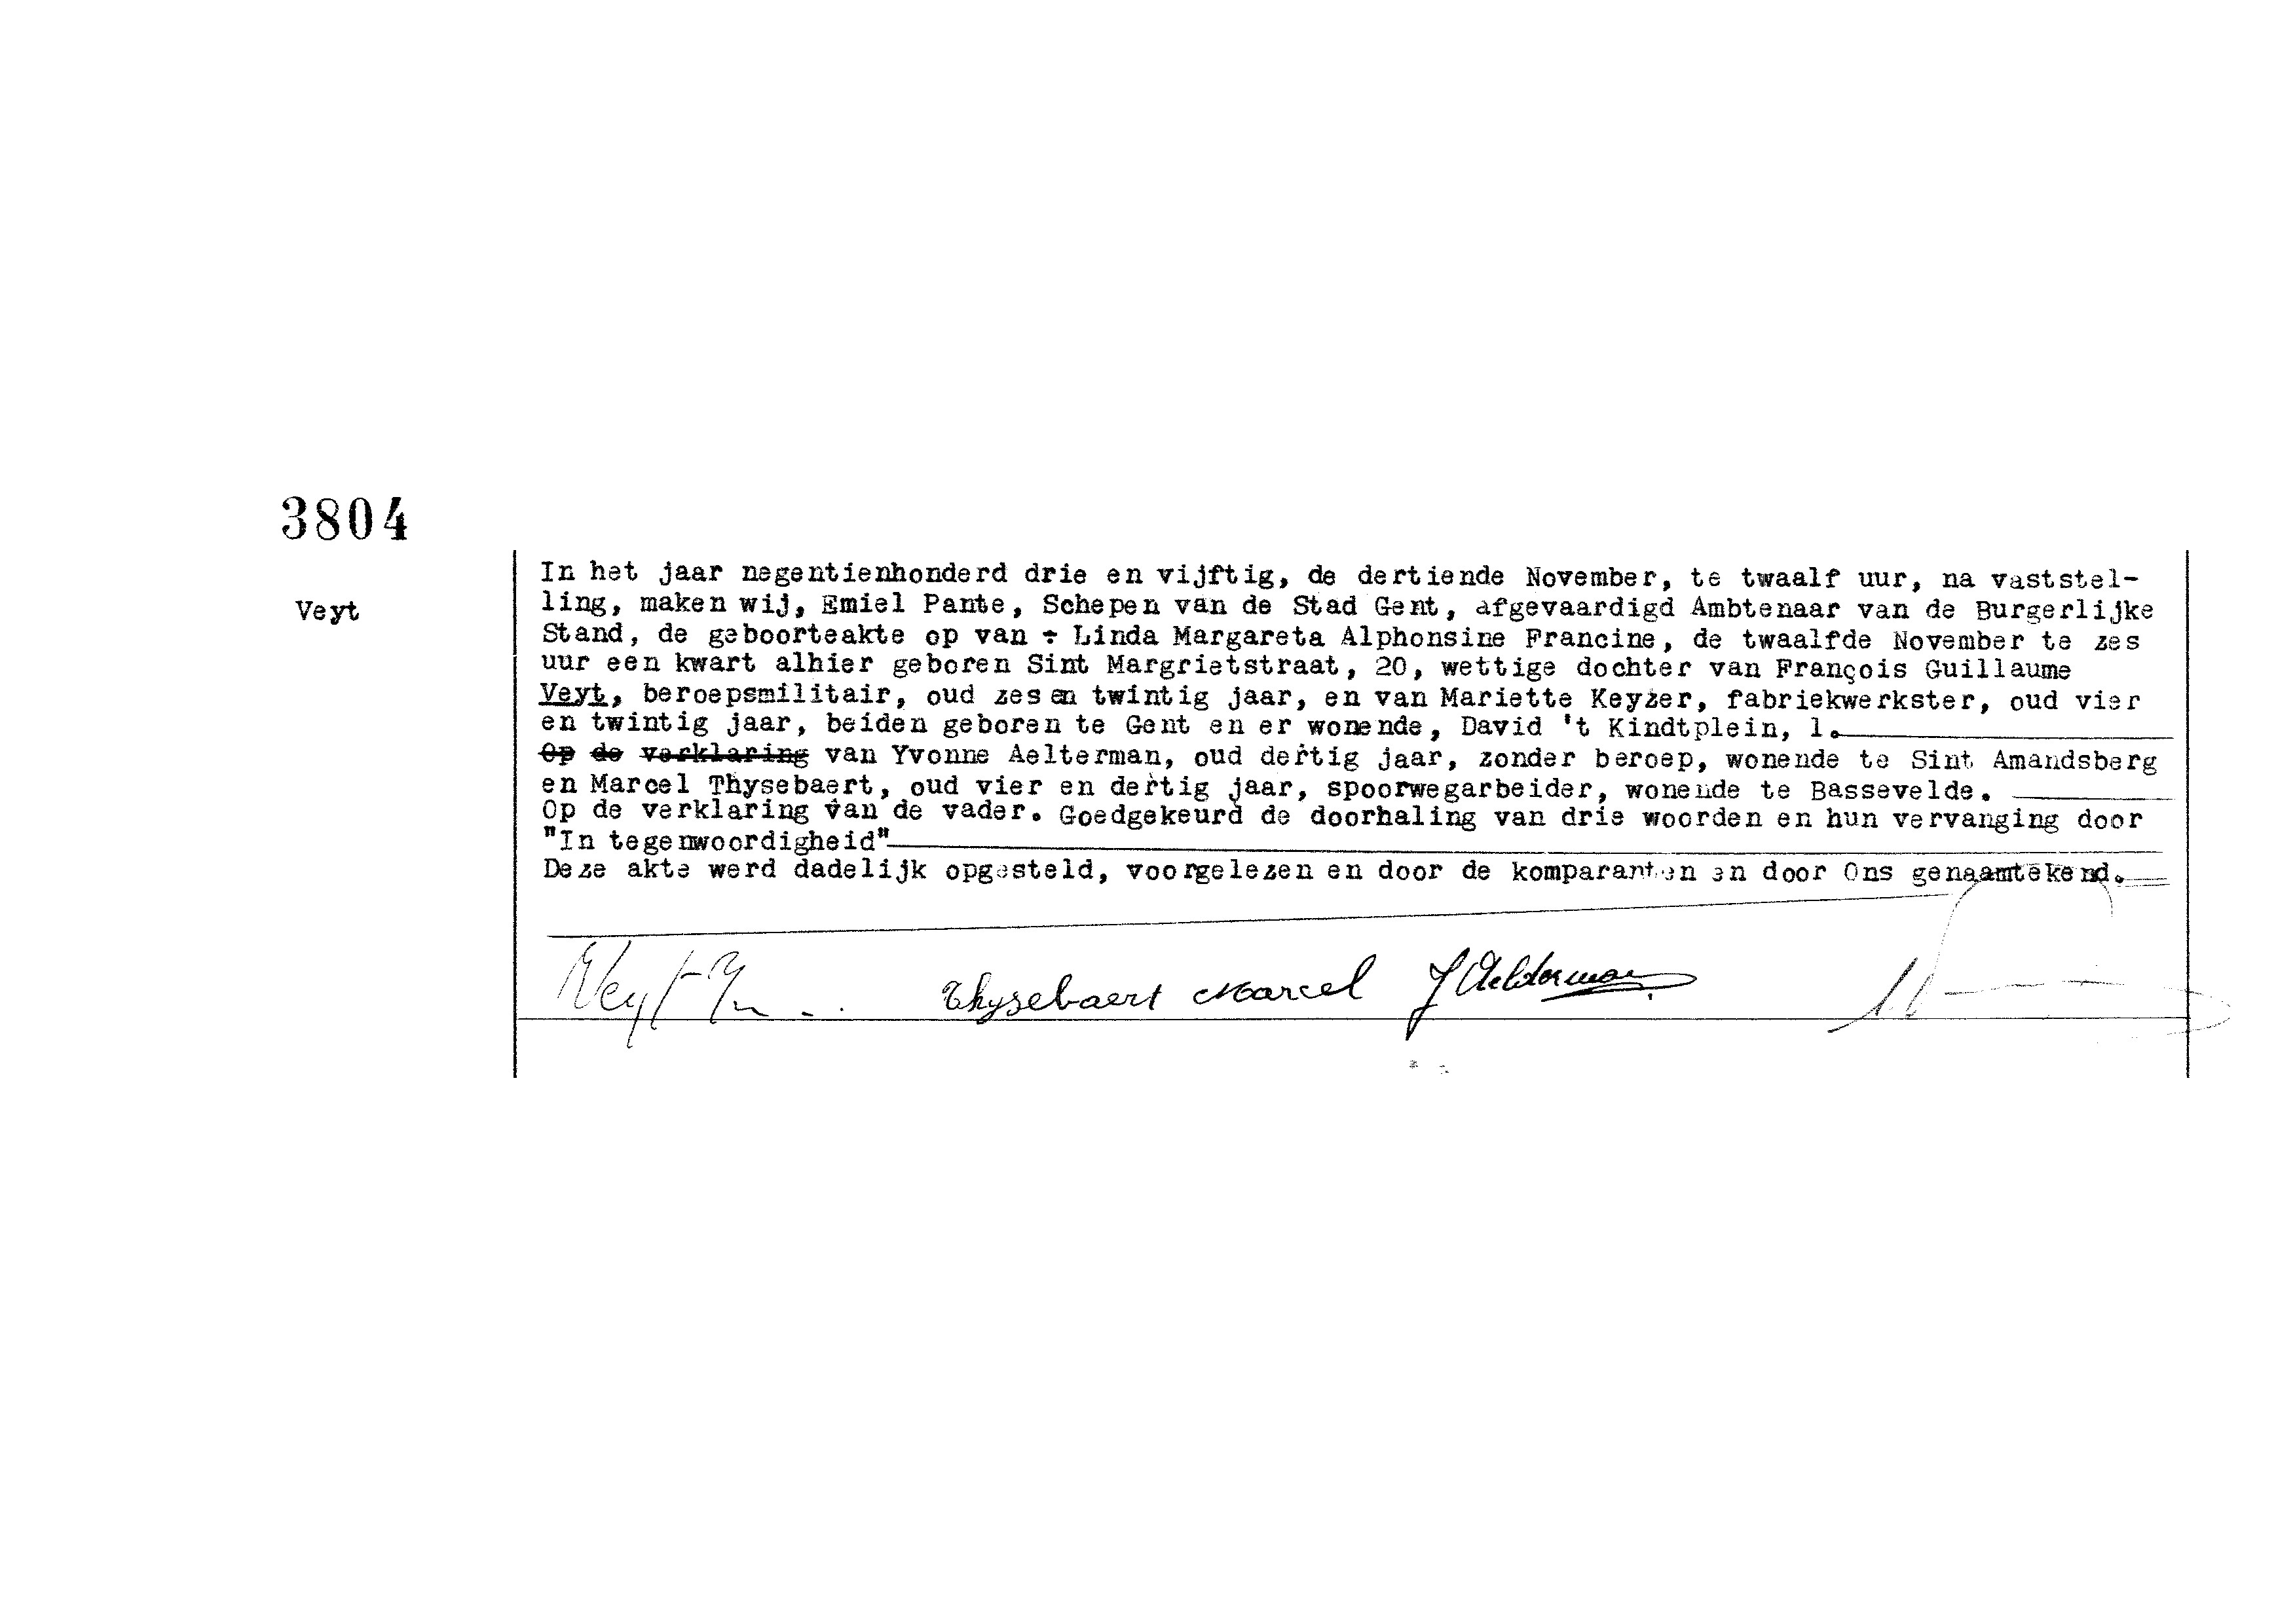 3804
Veyt
In het jaar negentienhonderd drie en vijftig, de dertiende November, te twaalf uur, na vaststel-
ling, maken wij, Emiel Pante, Schepen van de Stad Gent, afgevaardigd Ambtenaar van de Burgerlijke
Stand, de geboorteakte op van : Linda Margareta Alphonsine Francine, de twaalfde November te zes
uur een kwart alhier geboren Sint Margrietstraat, 20, wettige dochter van François Guillaume
Veyt, beroepsmilitair, oud zes en twintig jaar, en van Mariette Keyzer, fabriekwerkster, oud vier
en twintig jaar, beiden geboren te Gent en er wonende, David 't Kindtplein, 1.
Op de verklaring van Yvonne Aelterman, oud dertig jaar, zonder beroep, wonende te Sint Amandsberg
en Marcel Thysebaert, oud vier en dertig jaar, spoorwegarbeider, wonende te Bassevelde.
Op de verklaring van de vader. Goedgekeurd de doorhaling van drie woorden en hun vervanging door
"In tegenwoordigheid"
Deze akte werd dadelijk opgesteld, voorgelezen en door de komparanten en door Ons genaamtekend.
Veyt Thysebaert Marcel Y Aelterman